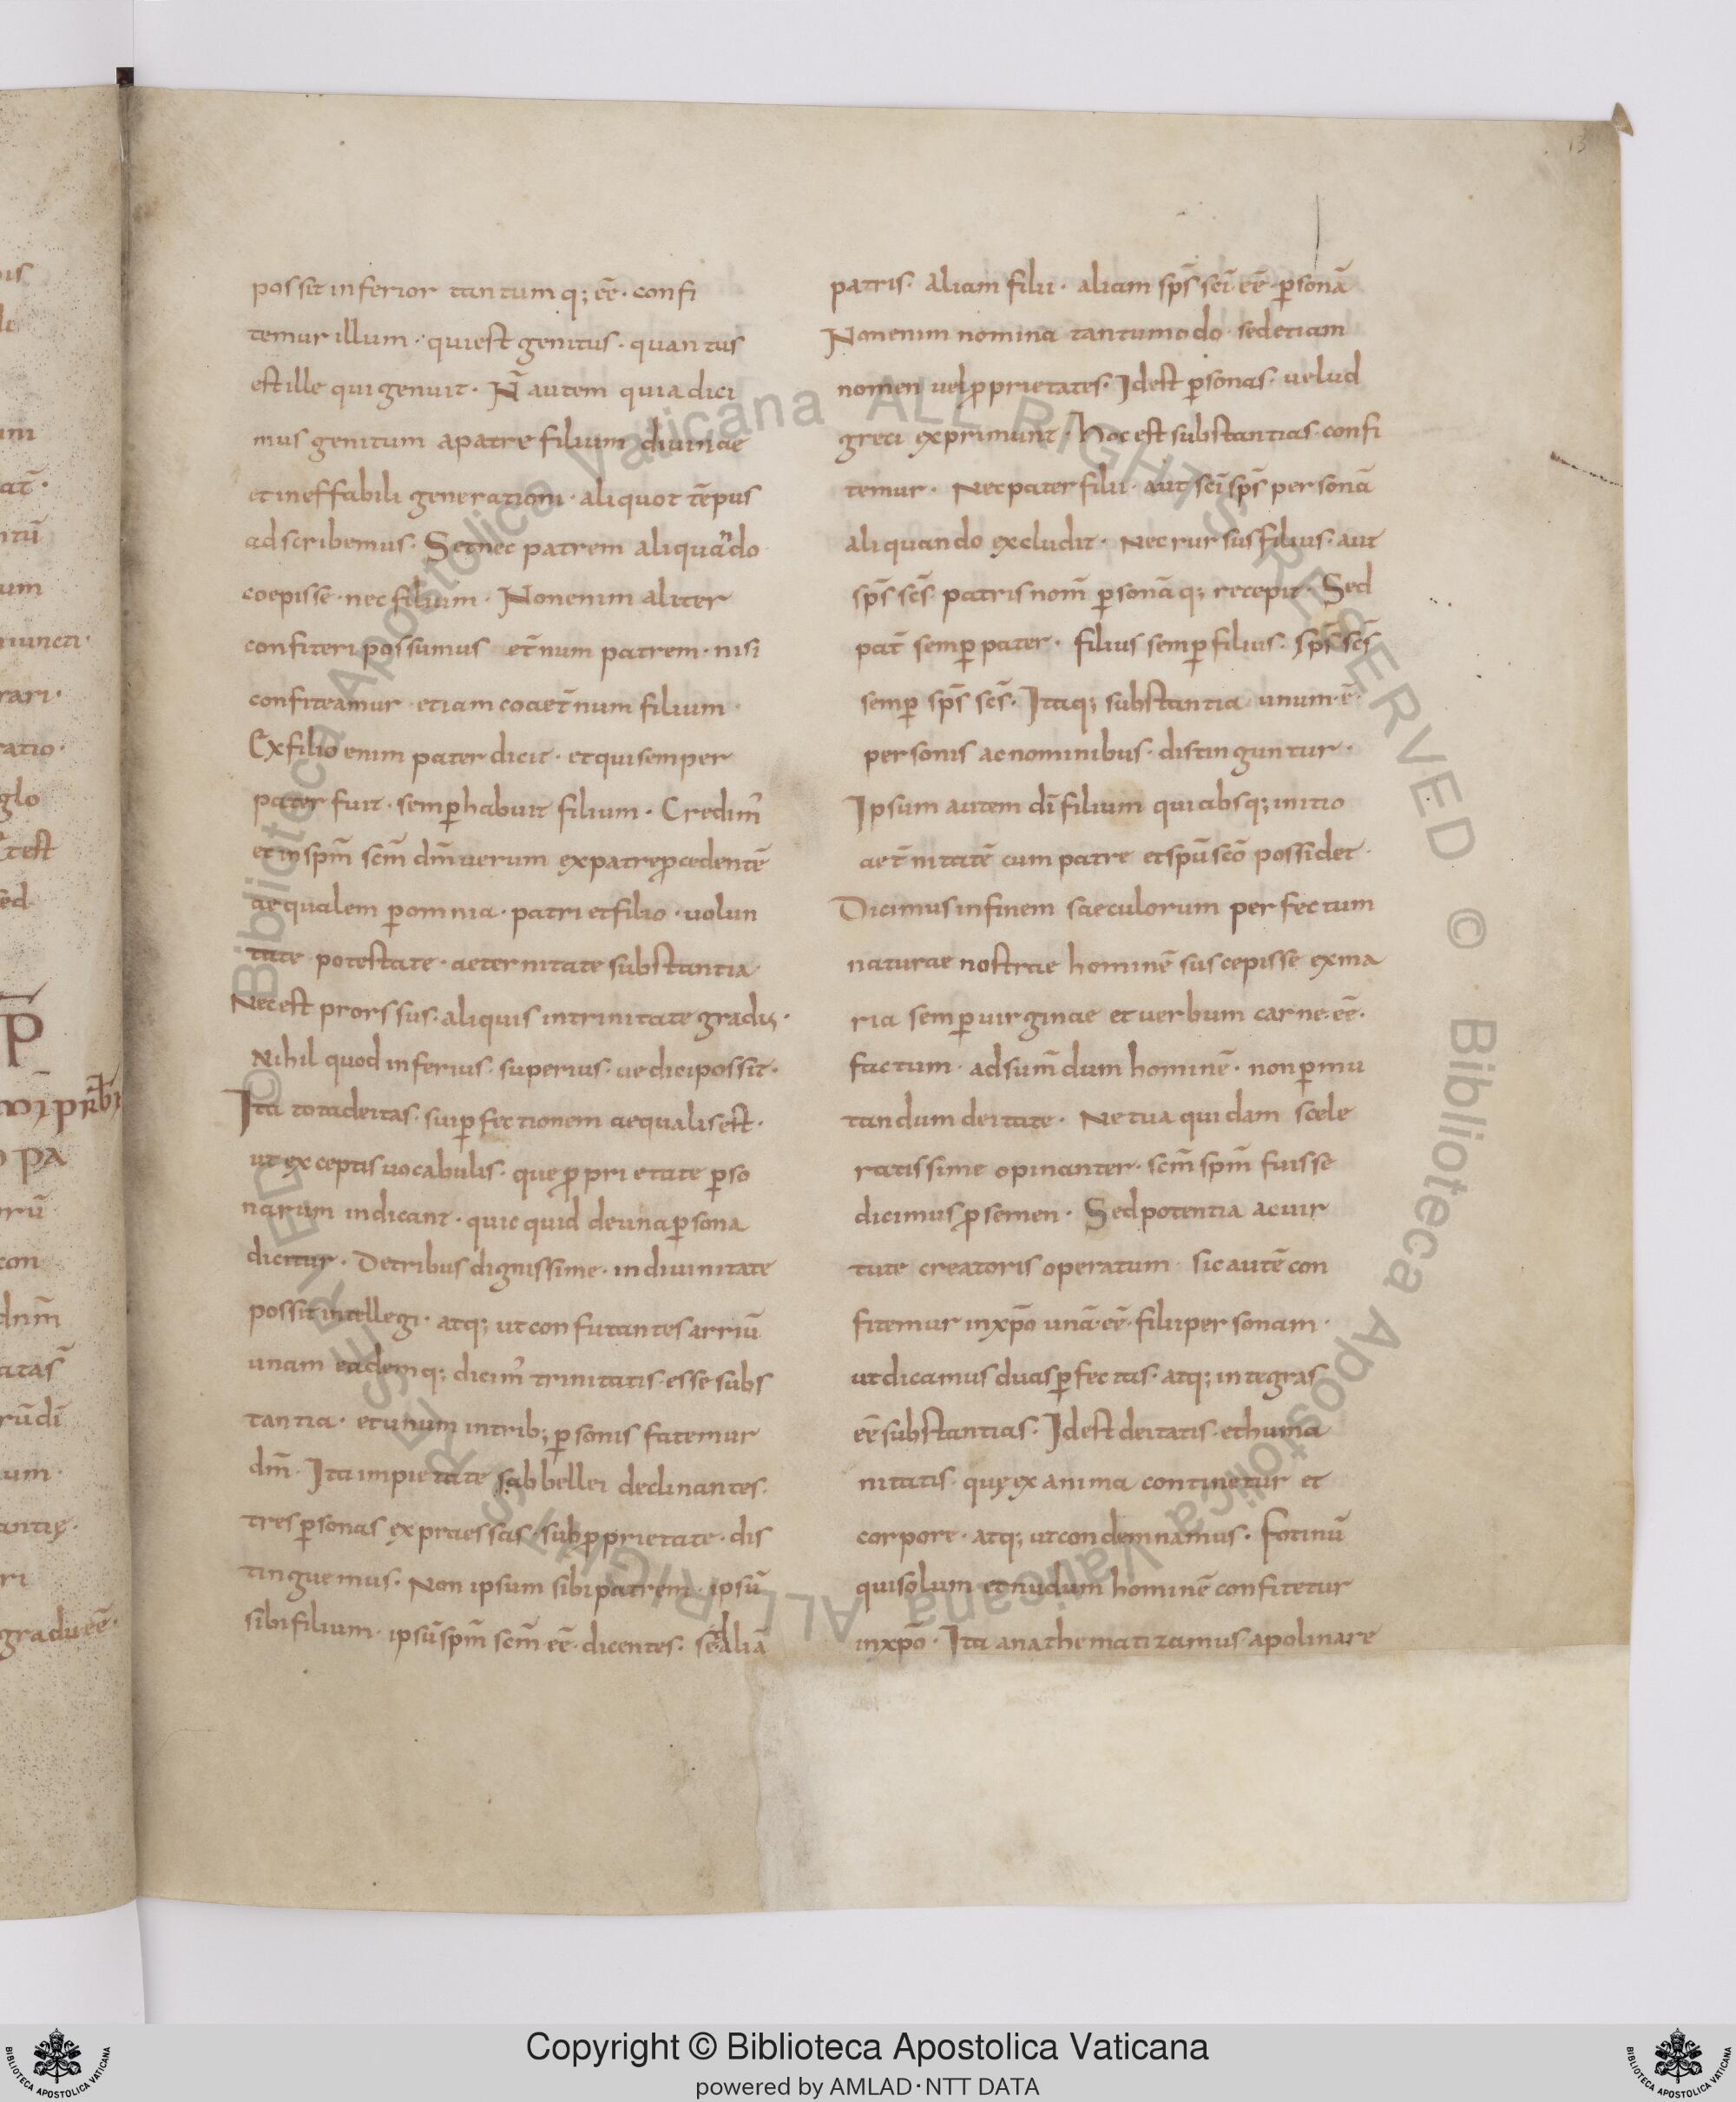 13
possit inferior tantumq; eē · confi
temur illum · qui est genitus · quantus
est ille qui genuit · N̄ autem quia dici
mus genitum a patre filium diuinae
et ineffabili generationi · aliquot tēpus
adscribemus · Set nec patrem aliquando
coepisse · nec filium · Non enim aliter
confiteri possumus et̄num patrem · nisi
confiteamur etiam coaet̄num filium ·
Ex filio enim pater dicit · et qui semper
pater fuit · semꝑ habuit filium · Credim᾿
et in spm̄ scm̄ dm̄ uerum ex patre ꝓcedentē
aequalem ꝑ omnia · patri et filio · uolun
tate potestate · aeternitate substantia ·
Nec est prorssus · aliquis in trinitate gradus ·
Nihil quod inferius · superius · ue dici possit ·
Ita tota deitas · sui ꝑfectionem aequalis est ·
ut exceptis uocabulis · que ꝓprietate ꝑso
narum indicant · quicquid de una ꝑsona
dicitur · De tribus dignissime · in diuinitate
possit intellegi · atq; ut confutantes arriū
unam eademq; dicim᾿ trinitatis · esse subs
tantia · et unum in trib; ꝑsonis fatemur
dm̄ · Ita impietate sabbellei declinantes ·
tres ꝑsonas expraessas · sub ꝓprietate · dis
tinguemus · Non ipsum sibi patrem · ipsū
sibi filium · ipsū spm̄ scm̄ eē · dicentes · sed aliā
patris · aliam filii · aliam sps̄ scī eē · ꝑsonā
Non enim nomina tantumodo · sed etiam
nomen uel ꝓprietates · Idest ꝑsonas · uelud
greci exprimunt · Hoc est substantias · confi
temur · Nec pater filii · aut scī sps̄ personā
aliquando excludit · Nec rursus filius · aut
sps̄ scs̄ patris nom̄ ꝑsonāq; recepit · Sed
pat̄ semꝑ pater · filius semꝑ filius · sps̄ scs̄
semꝑ sps̄ scs̄ · Itaq; substantia unum · ē ·
personis ac nominibus · distinguntur ·
Ipsum autem dī filium qui absq; initio
aet̄nitatē cum patre et spū scō possidet ·
Dicimus in finem saeculorum perfectum
naturae nostrae hominē suscepisse ex ma
ria semꝑ uirginae et uerbum carne · eē ·
factum · adsum̄dum hominē · non ꝑmu
tandum deitate · Ne tua quidam scele
ratissime opinanter · scm̄ spm̄ fuisse
dicimus ꝓ semen · Sed potentia ac uir
tute creatoris operatum · sic autē con
fitemur in xpō unā · eē · filii personam ·
ut dicamus duas ꝑfectas · atq; integras
eē substantias · Idest deitatis · et huma
nitatis · quę ex anima continetur et
corpore · atq; ut condemnamus · Fotinū
qui solum et nudum hominē confitetur
in xpō · Ita anathematizamus apolinare
Copyright © Biblioteca Apostolica Vaticana
powered by AMLAD·NTT DATA